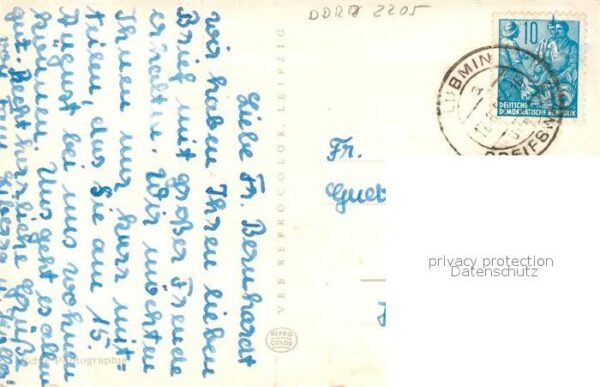 DDRB 2205
Liebe Fr. Bernhardt
wir haben Ihren lieben
Brief mit großer Freude
erhalten. Wir möchten
Ihnen nur kurz mit=
teilen, das Sie am 15.
August bei uns wohnen
können. Uns geht es allen
gut. Recht herzliche Grüße
Echte Photographie
VEB REPROCOLOR, LEIPZIG
REPRO
COLOR
10
DEUTSCHE
DEMOKRATISCHE REPUBLIK
LUBMIN
GREIFSW
Fr.
Guet
privacy protection
Datenschutz